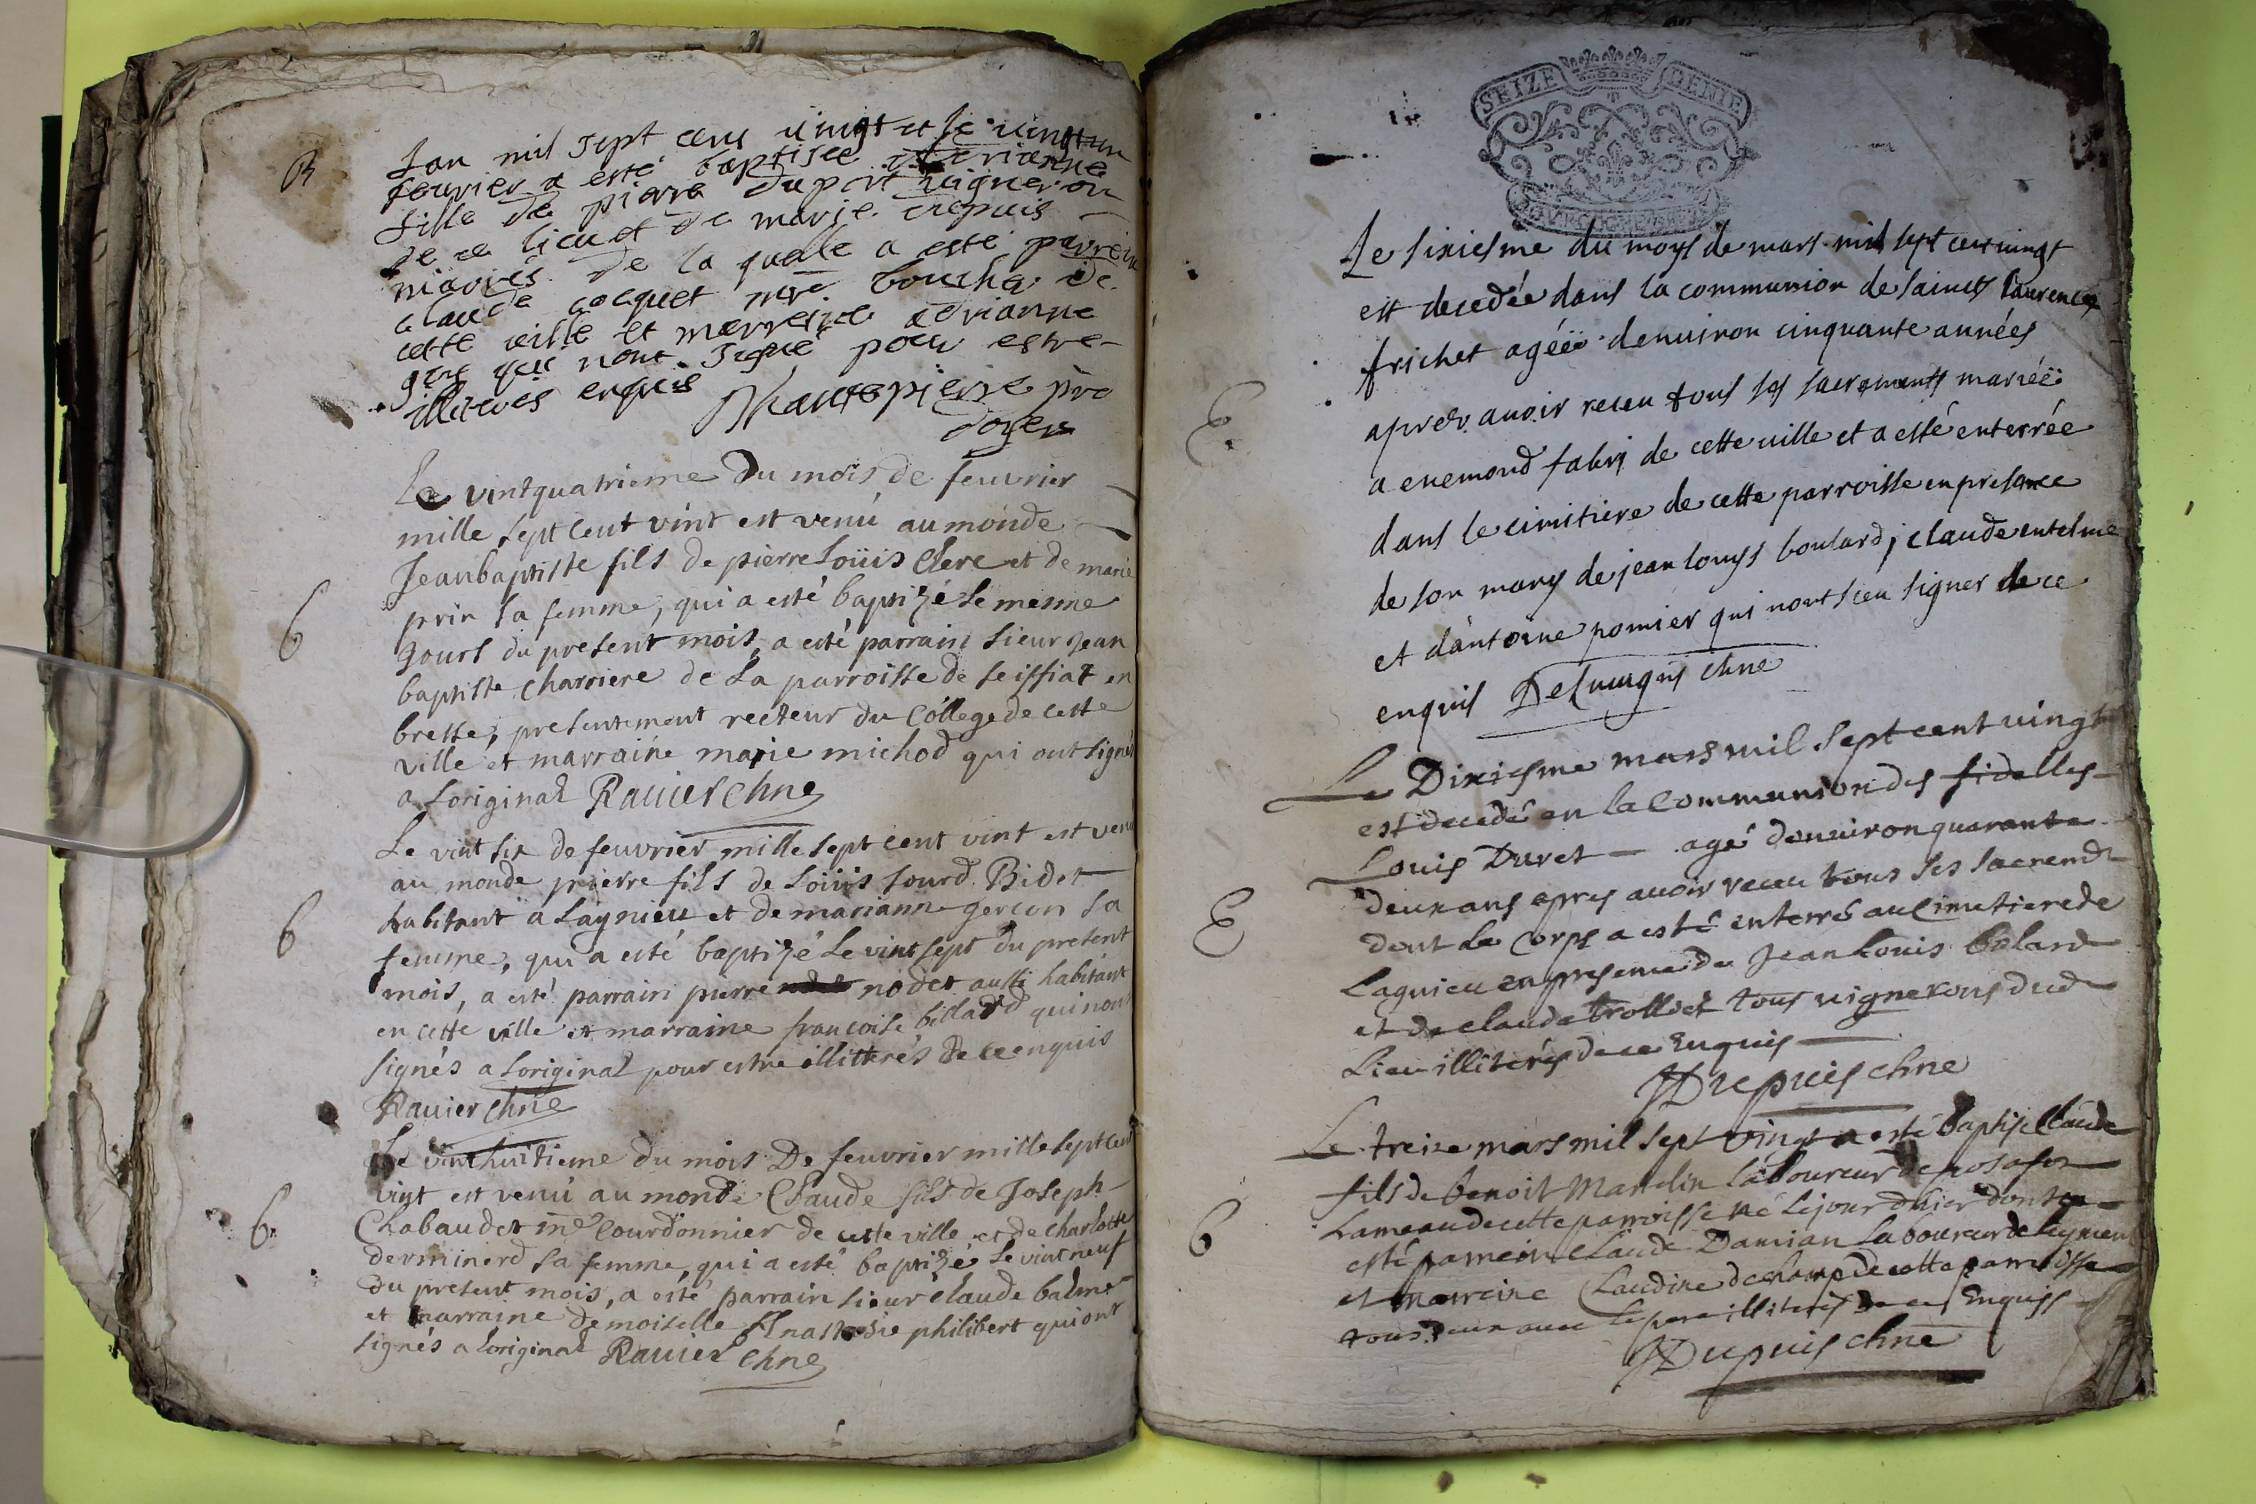 B
Lan mil sept cens vingt et le vingt un
feuvrier a esté baptisée adrianne
fille de pierre duport vigneron
de ce lieu et de marie depuis
mariés de la quelle a esté parrein
claude cocquet mre boucher de
cette ville et marreine adrianne
gens qui nont signé pour estre
illiterés enquis Mantepierre pre
doyen
Le vintquatrieme Du mois de feuvrier
mille sept cent vint est venu au monde
Jeanbaptiste fils de pierre Loüis Clerc et de marie
prin sa femme, qui a esté baptizé le mesme
6
Jours du present mois, a esté parrain sieur Jean
baptiste charriere de La parroisse de seissiat en
bresse, presentement recteur du College de cette
ville et marraine marie michod qui ont signés
a Loriginal Ravier Chne
Le vint six de feuvrier mille sept cent vint est venu
au monde pierre fils de Loüis sourd Bidet
6
habitant a Lagnieu et de marianne gercon sa
femme, qui a esté baptizé Le vint sept du present
mois, a esté parrain pierre nodet aussi habitant
en cette ville et marraine francoise billard qui nont
signés a Loriginal pour estre illitterés de ce enquis
Ravier Chne
Le vinthuitieme du mois De feuvrier mille sept cent
vint est venu au monde Claude fils de Joseph
6.
Chabaudet me Courdonnier de cette ville et de charlotte
derminerd sa femme, qui a esté baptizé Le vint neuf
du present mois, a esté parrain sieur claude balme
et marraine demoiselle Anastasie philibert qui ont
signés a loriginal Ravier Chne
SEIZE DENIE
Le sixiesme du moys de mars mil sept cens vingt
est decedée dans la communion de saincts laurence
frichet agéë denviron cinquante années
E.
apres avoir receu tous ses sacrements mariéë
a enemond fabri de cette ville et a esté enterrée
dans le cimitiere de cette parroisse en presance
de son mary de jean louys boulard, claude entelme
et dantoine pomier qui nont sceu signer de ce
enquis chne
Le Dixiesme mars mil sept cent vingt
est decedé en la Communion des fidelles
Louis Duret agé denviron quarante
E
deux ans apres avoir receu tous ses sacremt
dont le Corps a esté enterré au Cimetiere de
Lagnieu en presence de Jean Louis bolard
et de claude trolliet tous vignerons dud
Lieu illiterés de ce Enquis
Depuis chne
Le treize mars mil sept vingt a esté baptisé Claude
fils de benoit Mandlin laboureur de posafor
hameau de cette parroisse né le jour dhier dont a
6
esté parrein Claude Damian laboureur de
et marreine Claudine dechamp de cette parroisse
tous deux avec le pere illiterés de ce Enquis
Depuis chne